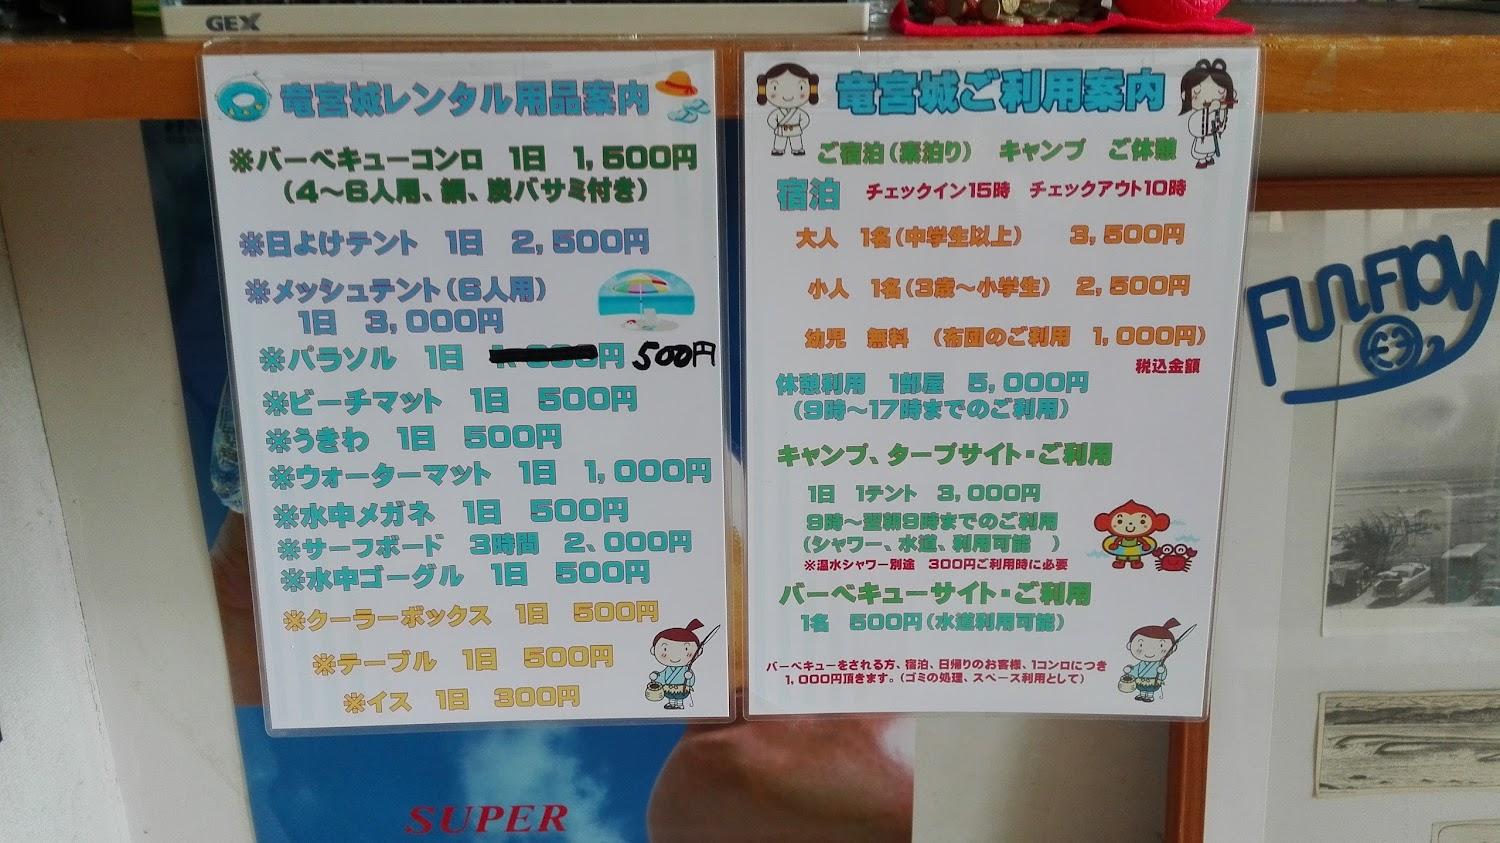 GEX
竜宮城レンタル用品案内
※バーベキューコンロ 1日 1,500円
(4〜6人用、網、炭バサミ付き)
※日よけテント 1日 2,500円
※メッシュテント(6人用)
1日 3,000円
※パラソル 1日 円 500円
※ビーチマット 1日 500円
※うきわ 1日 500円
※ウォーターマット 1日 1,000円
※水中メガネ 1日 500円
※サーフボード 3時間 2、000円
※水中ゴーグル 1日 500円
※クーラーボックス 1日 500円
※テーブル 1日 500円
※イス 1日 300円
竜宮城ご利用案内
ご宿泊(素泊り) キャンプ ご休憩
宿泊 チェックイン15時 チェックアウト10時
大人 1名(中学生以上) 3,500円
小人 1名(3歳〜小学生) 2,500円
幼児 無料 (布団のご利用 1,000円)
税込金額
休憩利用 1部屋 5,000円
(9時〜17時までのご利用)
キャンプ、タープサイト・ご利用
1日 1テント 3,000円
9時〜翌朝9時までのご利用
(シャワー、水道、利用可能 )
※温水シャワー別途 300円ご利用時に必要
バーベキューサイト・ご利用
1名 500円(水道利用可能)
バーベキューをされる方、宿泊、日帰りのお客様、1コンロにつき
1,000円頂きます。(ゴミの処理、スペース利用として)
FUNFLOW
SUPER